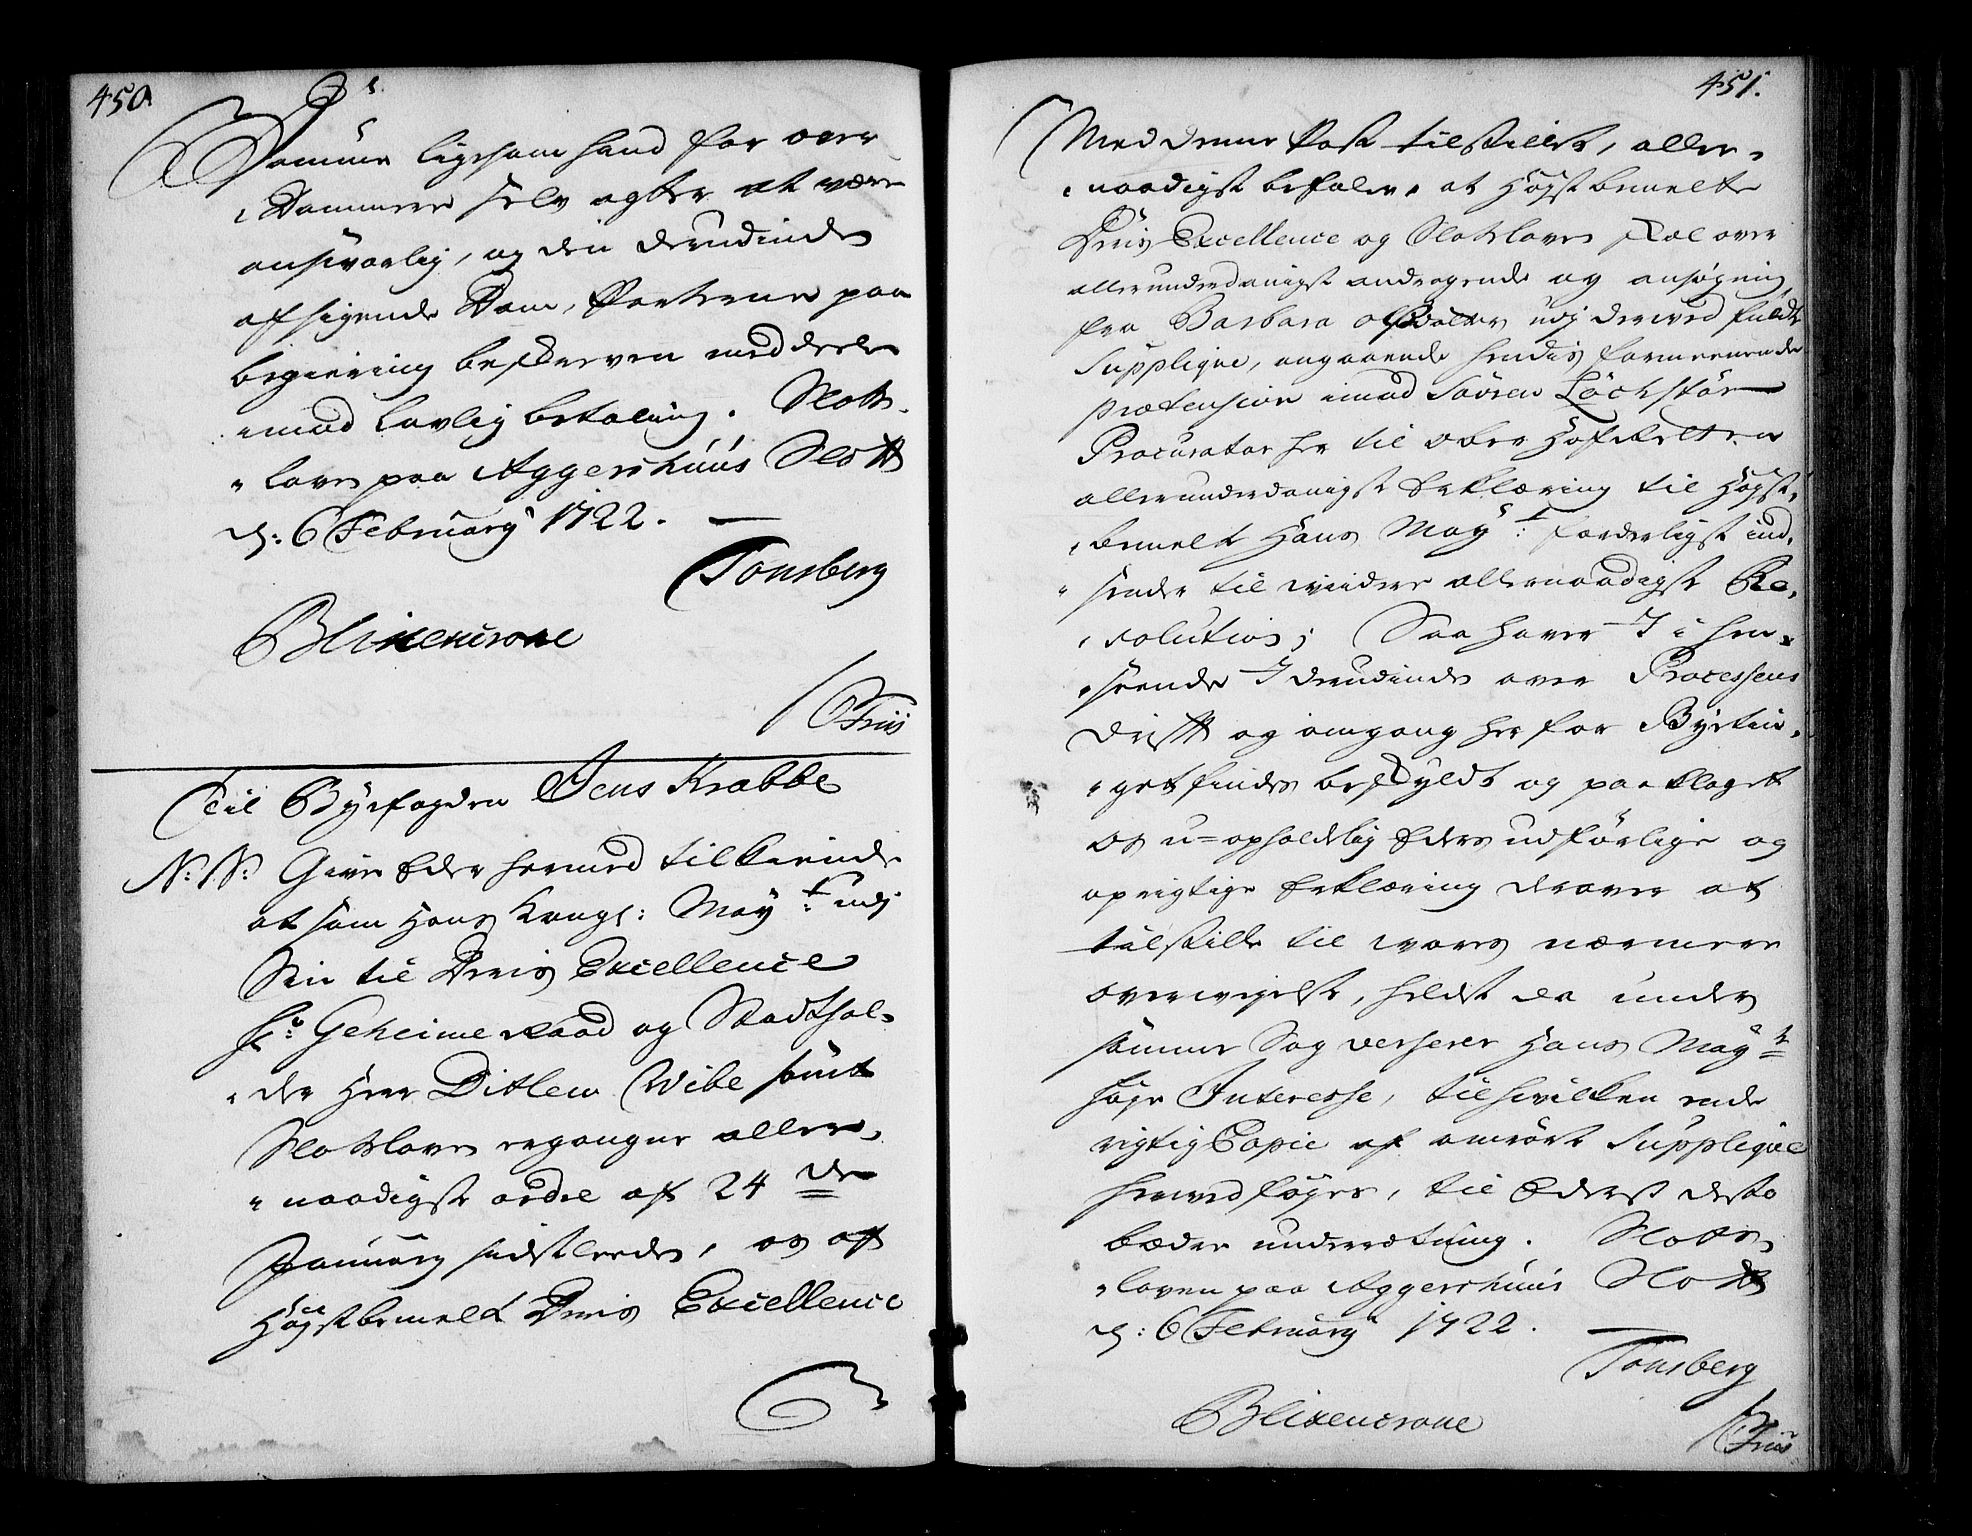 450
Domme ligesom hand for over
Dommere selv agter at være
ansvarlig, og den derudinde
afsigende Dom, Parterne paa
begiering beskreven meddeele
imod lovlig betaling. Slots-
loven paa Aggershuus Slott
d: 6 February 1722.
Tonsberg
Blixencrone
Friis
Til Byefogden Jens Krabbe
N: N: Give Eder hermed tilkiende
at som Hans Kongl: May:t udj
Sin til Deris Excellence
Hr: Geheime Raad og Stadthol-
der Herr Ditlew Wibe samt
Slotsloven ergangne aller-
naadigste ordre af 24 de
January sidstleeden, os af
Høystbemelt Deris Excellence
451.
Med denne Post tilstillet, aller-
naadigst befaler, at Høystbemelte
Deris Excellence og Slotsloven skal over
allerunderdanigst andragende og ansøgning
fra Barbara udj derved fulde
Supplique, angaaende hendis formeenende
prætension imod Søvren Lochstør
Procurator her til Ober Hof Retten
allerunderdanigst Erklæring til Høyst-
bemelt Hans May:t forderligst ind-
sende til viidere allernaadigst Re-
solution; Saa haver I i hen-
seende I derudinde over Processens
Drift og omgang her for Byetin-
get findes beskyldt og paaklaget
os u-opholdelig Eders udførlige og
oprigtige Erklæring derover at
tilstille til vores nærmere
overveyelse, heldst da under
samme Sag verserer Hans May:ts
høye Interesse, til hvilken ende
rigtig Copie af omrørte Supplique
herved følger, til Eders desto
bædre underretning. Slots-
loven paa Aggershuus Slott
d: 6 February 1722.
Tonsberg
Blixencrone
Friis